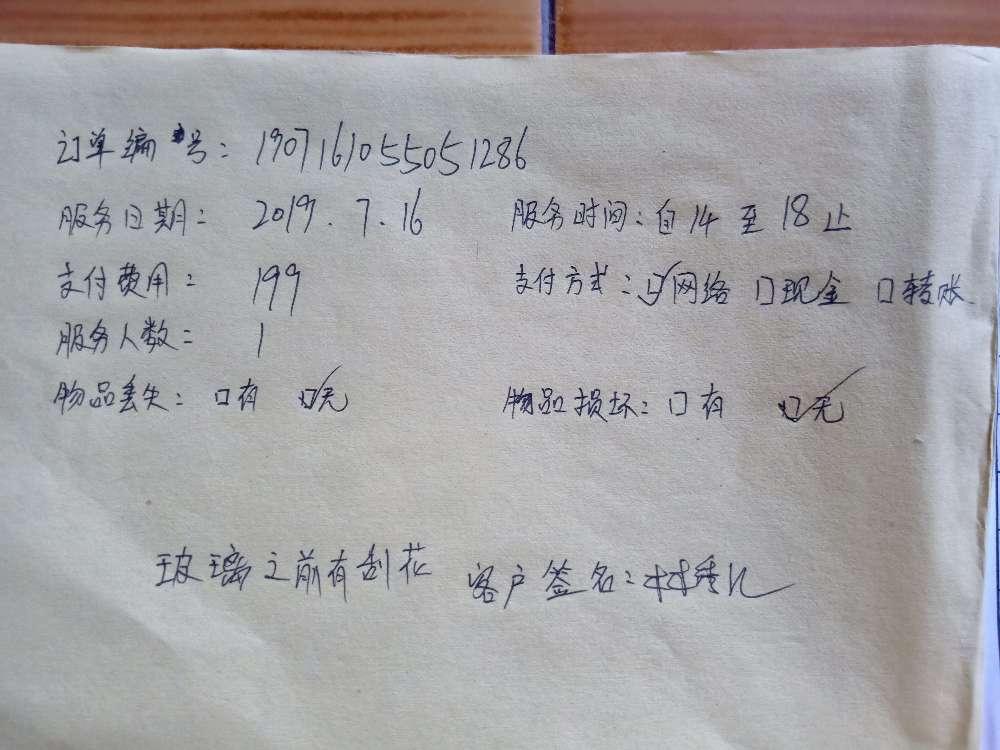 订单编号：1907161055051286
服务日期：2019.7.16 服务时间：自14至18止
支付费用：199 支付方式：☑网络 □现金 □转账
服务人数：1
物品丢失：□有 ☑无 物品损坏：□有 ☑无
玻璃之前有刮花 客户签名：林秀